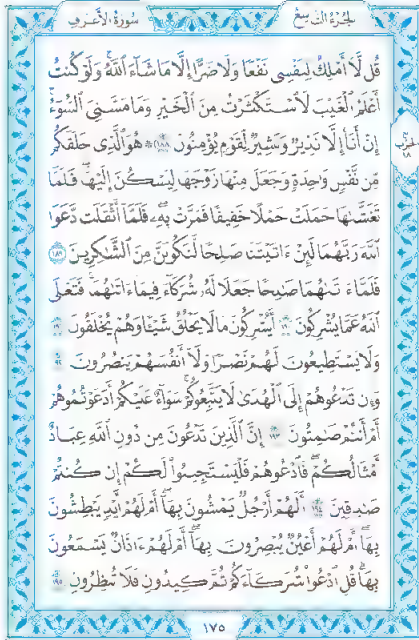 الجزء التاسع
سورة الأعراف
قُل لَّا أَمْلِكُ لِنَفْسِى نَفْعًا وَلَا ضَرًّا إِلَّا مَا شَاءَ ٱللَّهُ وَلَوْ كُنتُ
أَعْلَمُ ٱلْغَيْبَ لَٱسْتَكْثَرْتُ مِنَ ٱلْخَيْرِ وَمَا مَسَّنِىَ ٱلسُّوءُ
إِنْ أَنَا۠ إِلَّا نَذِيرٌ وَبَشِيرٌ لِّقَوْمٍ يُؤْمِنُونَ ١٨٨ ۞ هُوَ ٱلَّذِى خَلَقَكُم
مِّن نَّفْسٍ وَٰحِدَةٍ وَجَعَلَ مِنْهَا زَوْجَهَا لِيَسْكُنَ إِلَيْهَا فَلَمَّا
تَغَشَّىٰهَا حَمَلَتْ حَمْلًا خَفِيفًا فَمَرَّتْ بِهِۦ فَلَمَّا أَثْقَلَت دَّعَوَا
ٱللَّهَ رَبَّهُمَا لَئِنْ ءَاتَيْتَنَا صَٰلِحًا لَّنَكُونَنَّ مِنَ ٱلشَّٰكِرِينَ ١٨٩
فَلَمَّا ءَاتَىٰهُمَا صَٰلِحًا جَعَلَا لَهُۥ شُرَكَاءَ فِيمَا ءَاتَىٰهُمَا فَتَعَٰلَى
ٱللَّهُ عَمَّا يُشْرِكُونَ ١٩٠ أَيُشْرِكُونَ مَا لَا يَخْلُقُ شَيْـًٔا وَهُمْ يُخْلَقُونَ ١٩١
وَلَا يَسْتَطِيعُونَ لَهُمْ نَصْرًا وَلَا أَنفُسَهُمْ يَنصُرُونَ ١٩٢
وَإِن تَدْعُوهُمْ إِلَى ٱلْهُدَىٰ لَا يَتَّبِعُوكُمْ سَوَاءٌ عَلَيْكُمْ أَدَعَوْتُمُوهُمْ
أَمْ أَنتُمْ صَٰمِتُونَ ١٩٣ إِنَّ ٱلَّذِينَ تَدْعُونَ مِن دُونِ ٱللَّهِ عِبَادٌ
أَمْثَالُكُمْ فَٱدْعُوهُمْ فَلْيَسْتَجِيبُوا۟ لَكُمْ إِن كُنتُمْ
صَٰدِقِينَ ١٩٤ أَلَهُمْ أَرْجُلٌ يَمْشُونَ بِهَا أَمْ لَهُمْ أَيْدٍ يَبْطِشُونَ
بِهَا أَمْ لَهُمْ أَعْيُنٌ يُبْصِرُونَ بِهَا أَمْ لَهُمْ ءَاذَانٌ يَسْمَعُونَ
بِهَا قُلِ ٱدْعُوا۟ شُرَكَاءَكُمْ ثُمَّ كِيدُونِ فَلَا تُنظِرُونِ ١٩٥
١٧٥